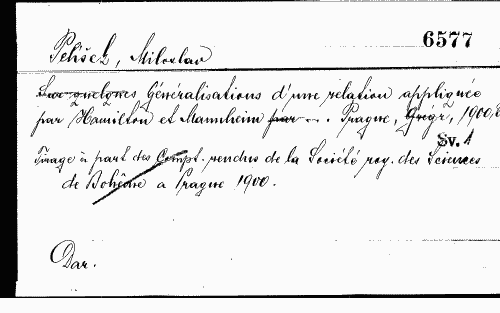 6577
Pelíšek, Miloslav
Sur quelques Généralisations d'une relation appliquée
par Hamilton et Mannheim par . . Prague, Grégr, 1900,8
Sv. 1
Tirage à part des Compt. rendus de la Société roy. des Sciences
de Bohême a Prague 1900.
Dar.